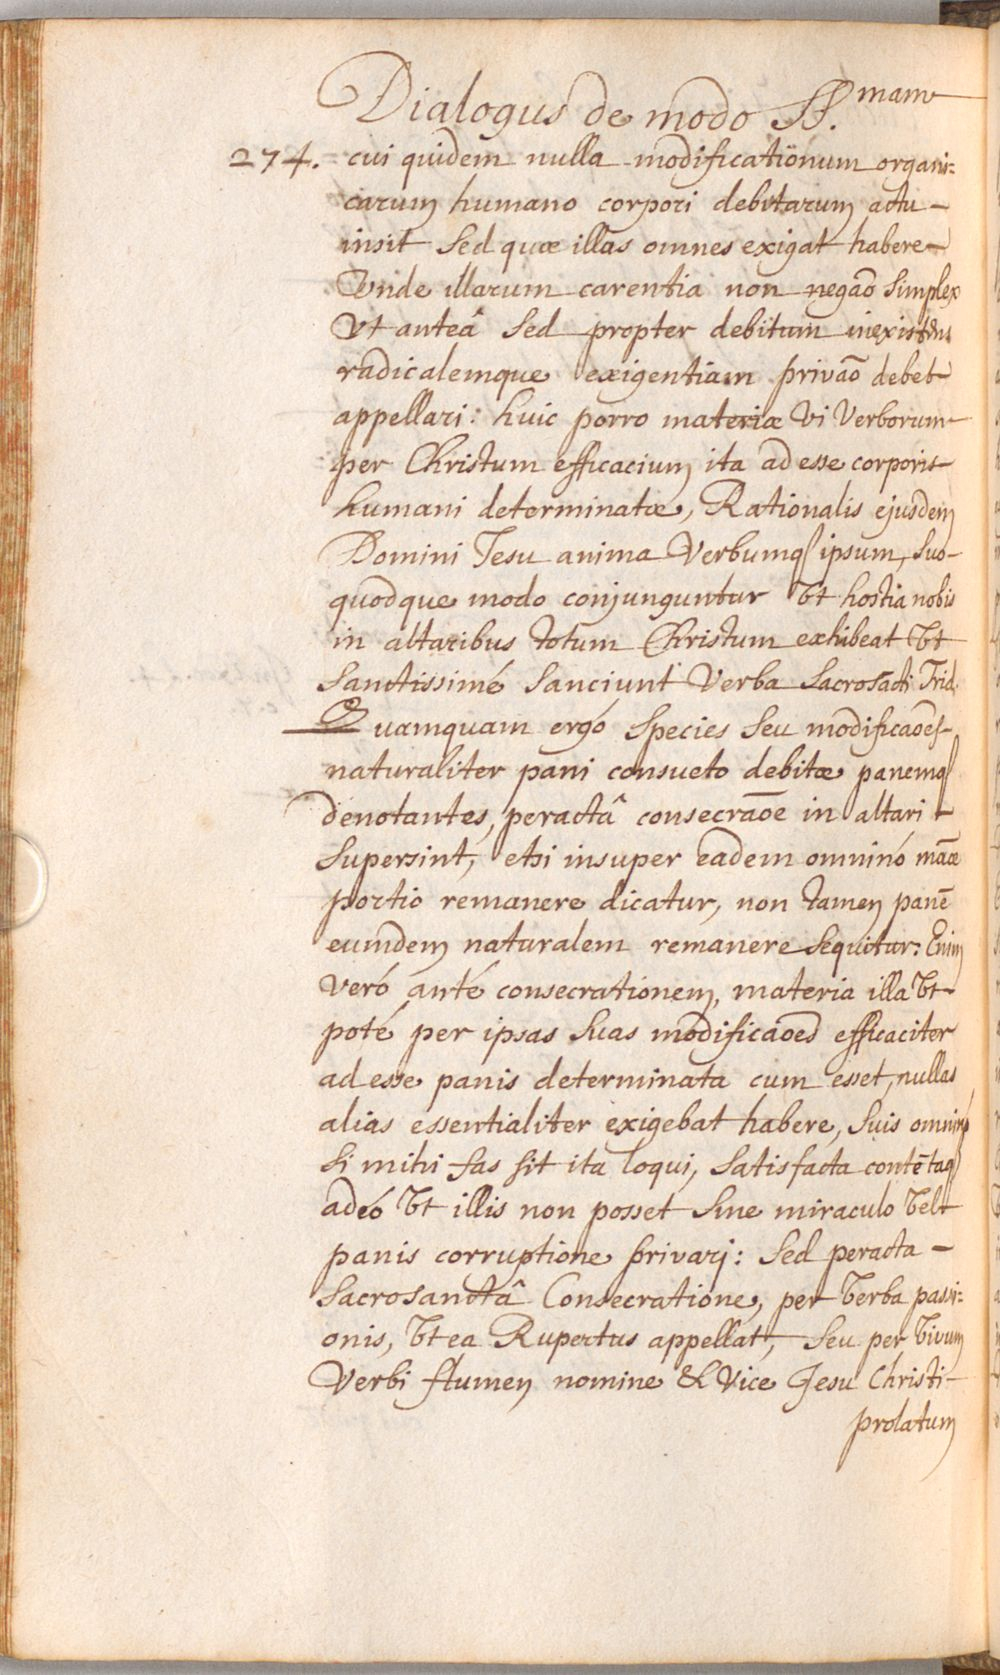 Dialogus de modo SS.mam
274. cui quidem nulla modificationum organi=
carum humano corpori debitarum actu -
insit sed quæ illas omnes exigat habere
Vnde illarum carentia non negaõ simplex
Vt anteâ sed propter debitum inexistens
radicalemque exigentiam privaõ debet
appellari: huic porro materiæ vi Verborum
per Christum efficacium ita ad esse corporis
humani determinatæ, Rationalis ejusdem
Domini Jesu anima Verbumq ipsum, suo-
quodque modo conjunguntur Vt hostia nobis
in altaribus totum Christum exhibeat Vt
Sanctissimé sanciunt Verba Sacrosãcti Trid.
Quamquam ergó species seu modificaões
naturaliter pani consueto debitæ panemq
denotantes, peractâ consecraõe in altari
supersint, etsi insuper eadem omninó mãæ
portio remanere dicatur, non tamen panẽ
eumdem naturalem remanere sequitur: Enim
Veró anté consecrationem, materia illa Vt-
poté per ipsas suas modificaões efficaciter
ad esse panis determinata cum esset, nullas
alias essentialiter exigebat habere, suis omninó
si mihi fas sit ita loqui, satisfacta contẽtaq
adeó Vt illis non posset sine miraculo Vel
panis corruptione privari: sed peracta -
Sacrosanctâ Consecratione, per Verba passi=
onis, Vt ea Rupertus appellat, seu per Vivum
Verbi flumen nomine & Vice Jesu Christi
prolatum